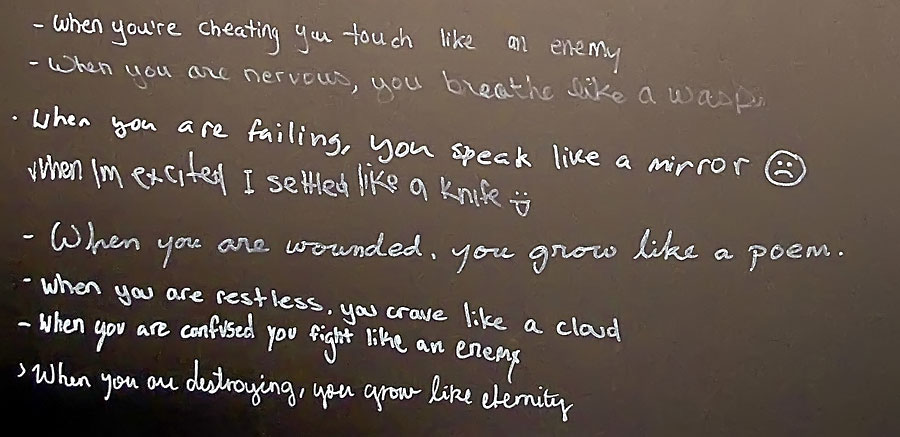 - When you're cheating you touch like an enemy
- When you are nervous, you breathe like a wasp.
· When you are failing, you speak like a mirror ☹
When I'm excited I settled like a knife
- When you are wounded, you grow like a poem.
- When you are restless, you crave like a cloud
- When you are confused you fight like an enemy
> When you are destroying, you grow like eternity